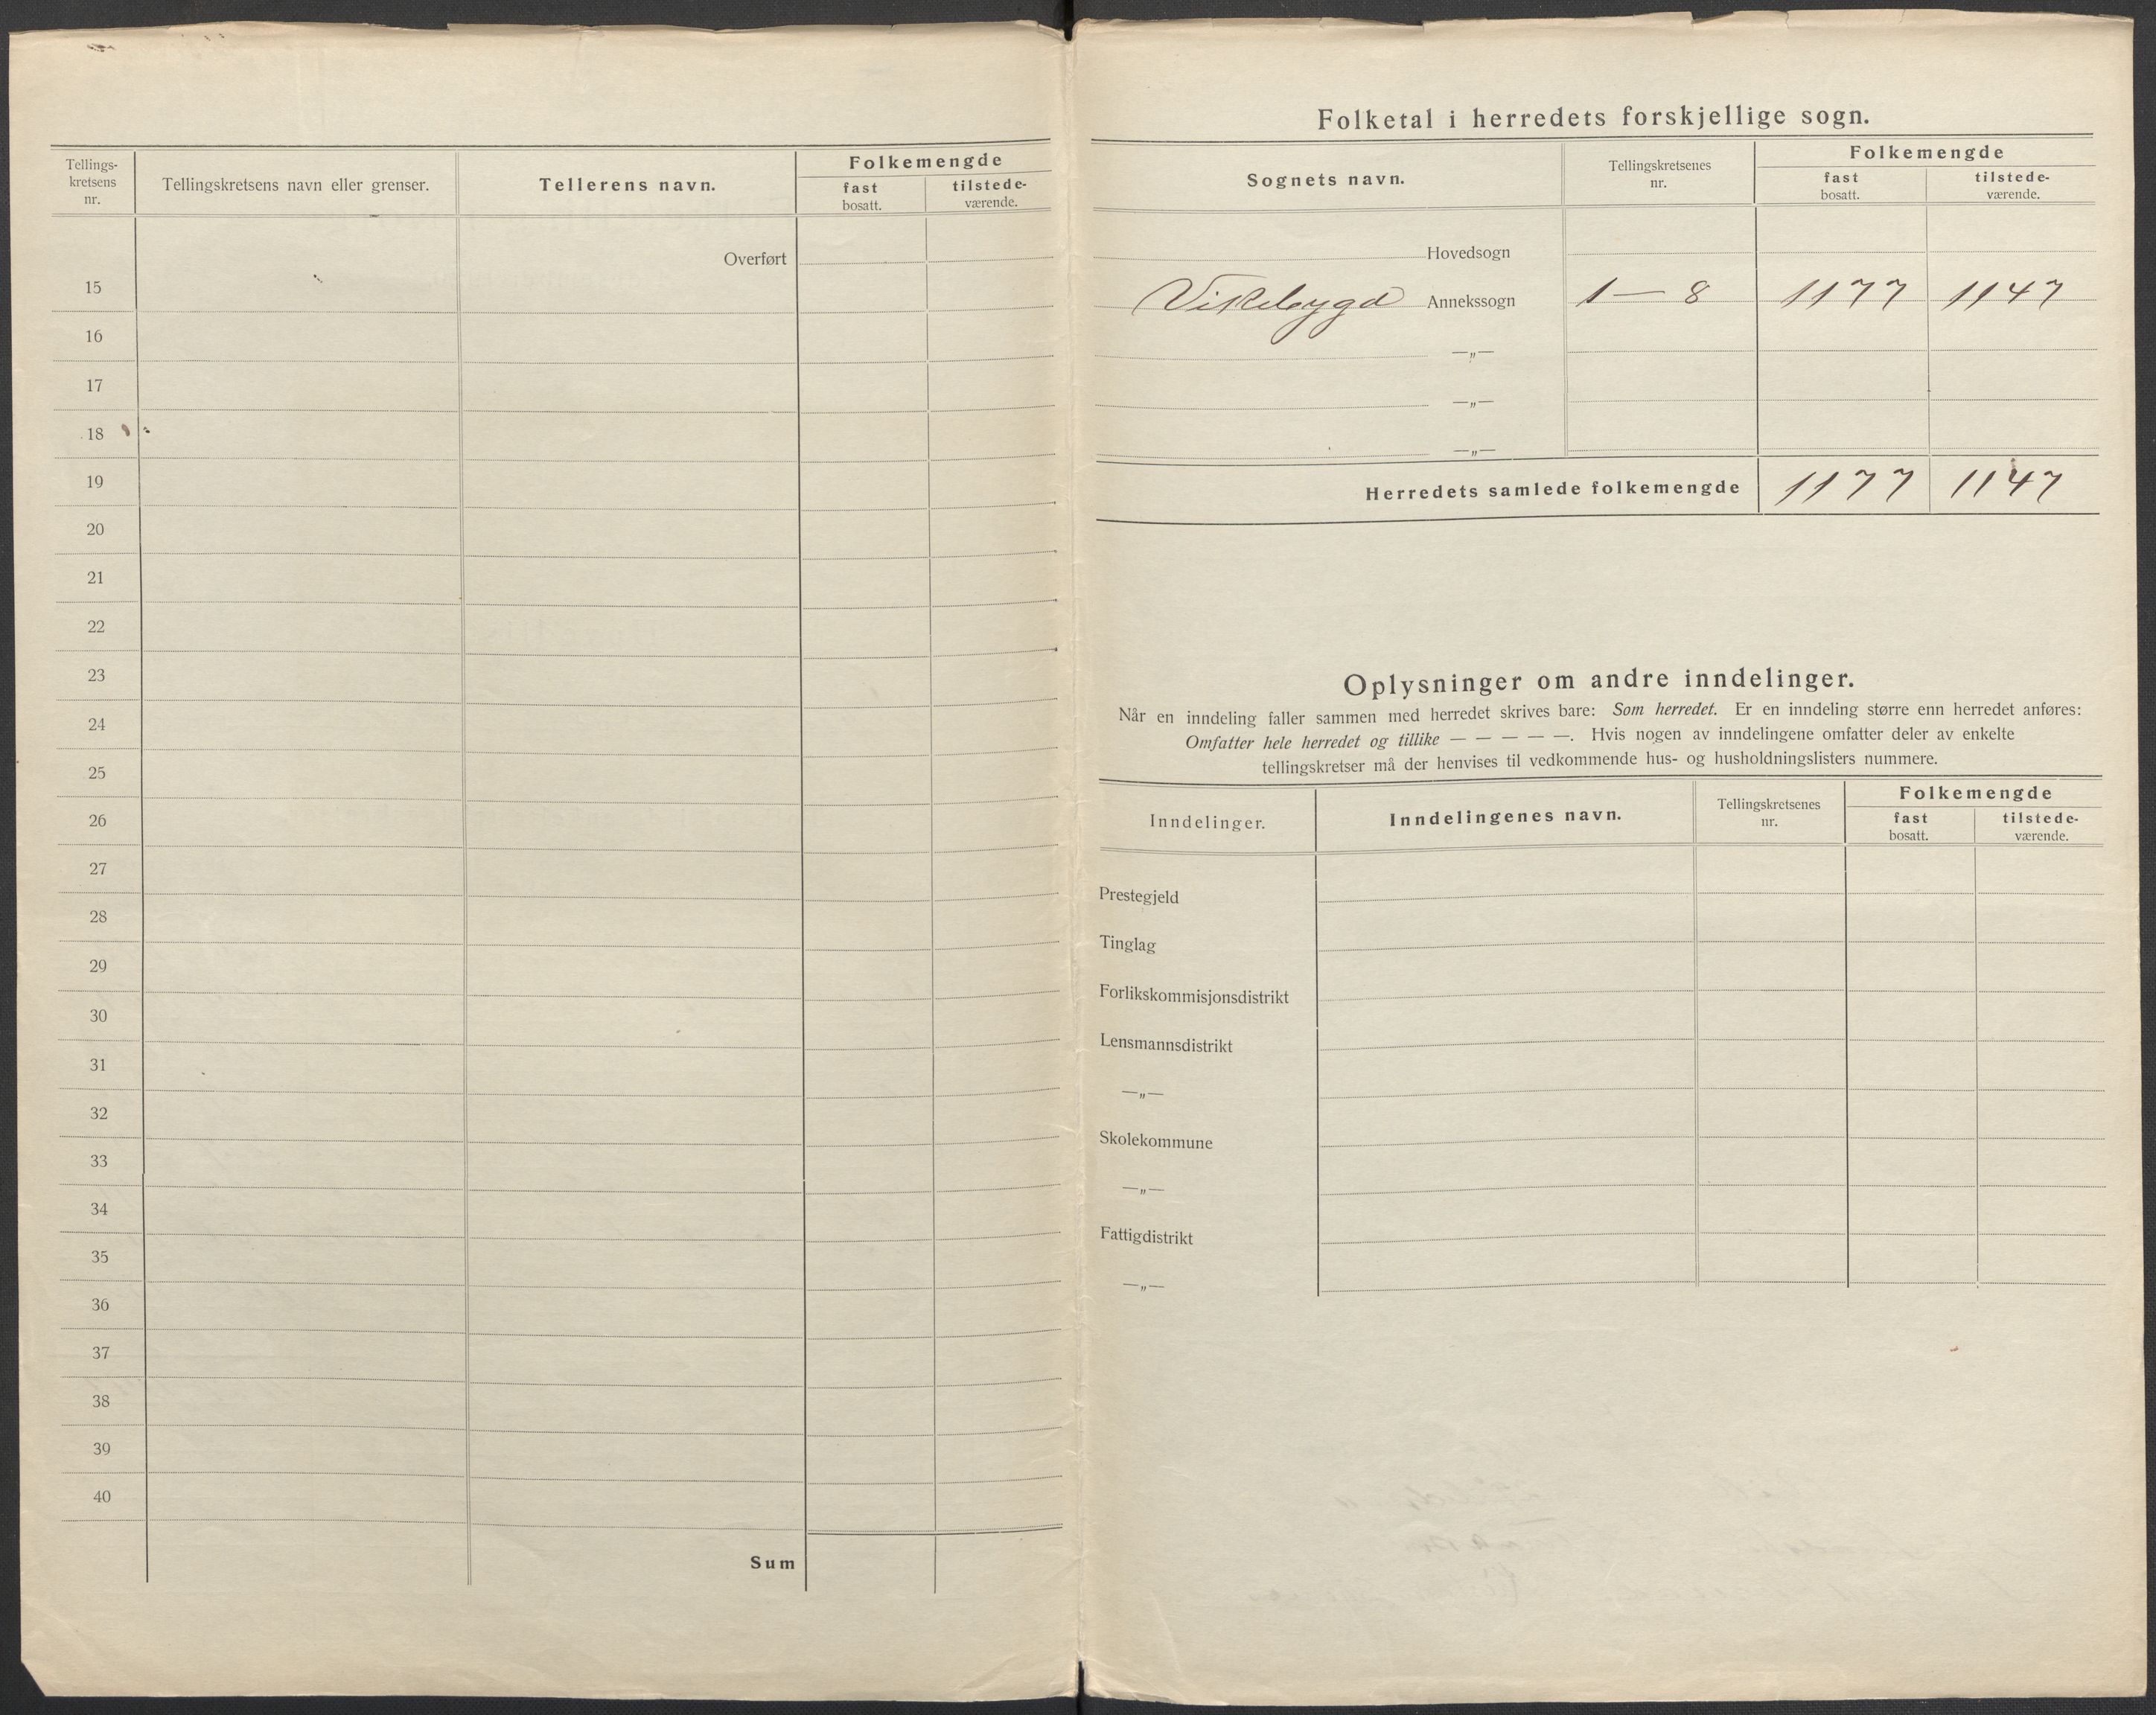 Tellings-
kretsens
nr.
Tellingskretsens navn eller grenser.
Tellerens navn.
Folkemengde
fast
bosatt.
tilstede-
værende.
Overført
15
16
17
18
19
20
21
22
23
24
25
26
27
28
29
30
31
32
33
34
35
36
37
38
39
40
Sum
Folketal i herredets forskjellige sogn.
Sognets navn.
Tellingskretsenes
nr.
Folkemengde
fast
bosatt.
tilstede-
værende.
Hovedsogn
Vikebygd Annekssogn 1 — 8 1177 1147
—„—
—„—
—„—
Herredets samlede folkemengde 1177 1147
Oplysninger om andre inndelinger.
Når en inndeling faller sammen med herredet skrives bare: Som herredet. Er en inndeling større enn herredet anføres:
Omfatter hele herredet og tillike — — — — —. Hvis nogen av inndelingene omfatter deler av enkelte
tellingskretser må der henvises til vedkommende hus- og husholdningslisters nummere.
Inndelinger.
Inndelingenes navn.
Tellingskretsenes
nr.
Folkemengde
fast
bosatt.
tilstede-
værende.
Prestegjeld
Tinglag
Forlikskommisjonsdistrikt
Lensmannsdistrikt
—„—
Skolekommune
—„—
Fattigdistrikt
—„—